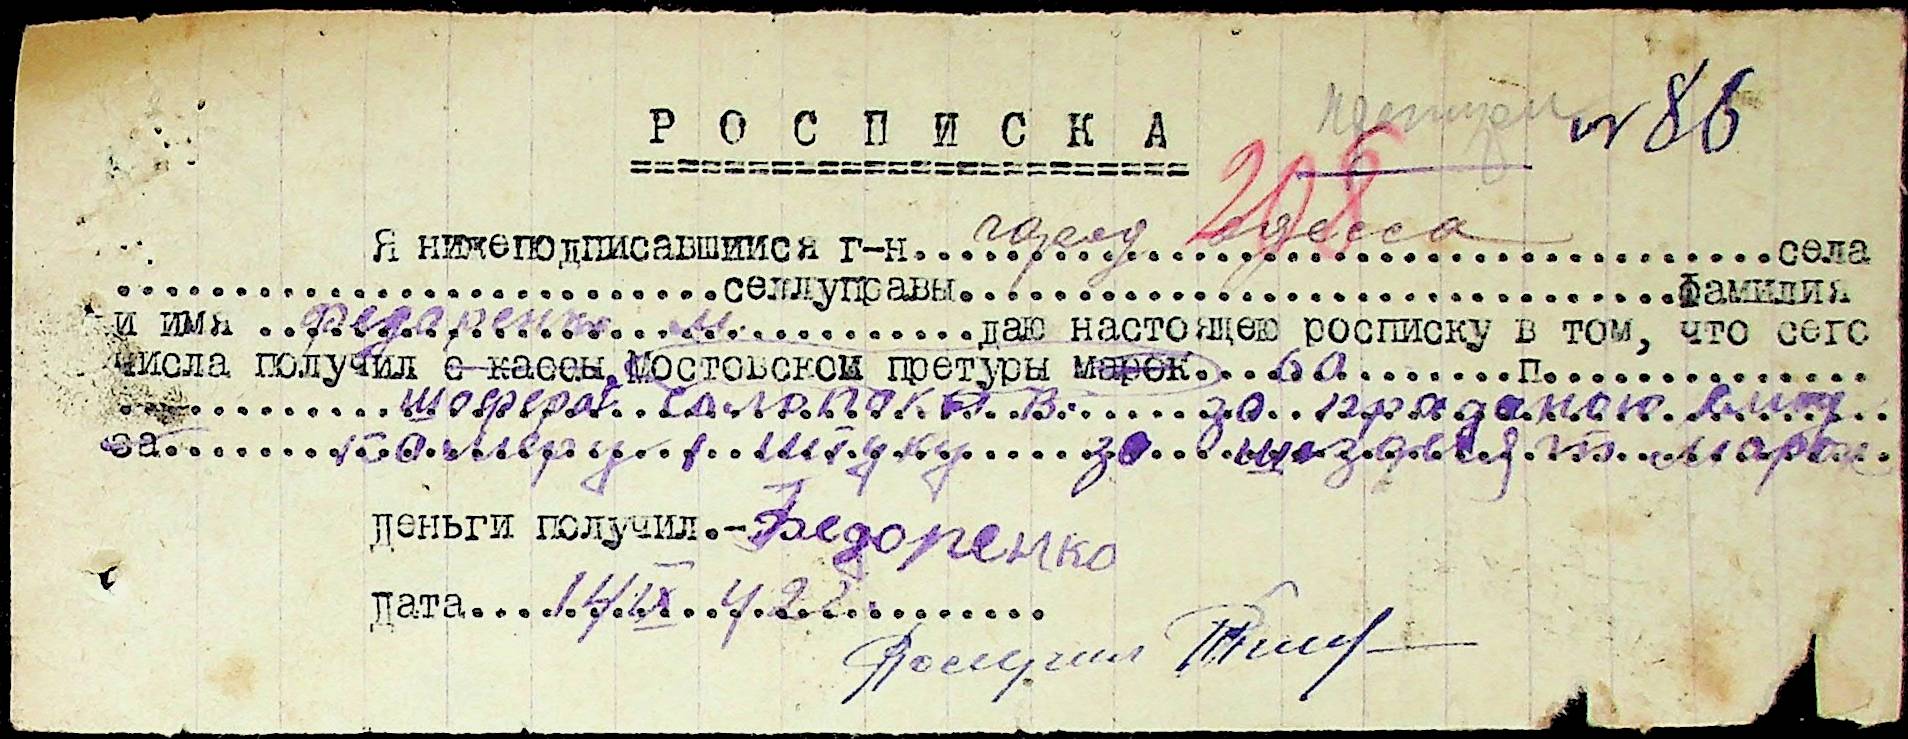 № 86
РОСПИСКА
208
Я нижеподписавшийся г-н....город Одесса....села
....селлуправы....фамилия
и имя ..Федоренко м.....даю настоящею росписку в том, что сего
числа получил с кассы Мостовской претуры марок....60....п....
....шофера.......В. за проданою
за....камеру 1 штуку за марок
деньги получил.-Федоренко
дата....14/IX 42г.